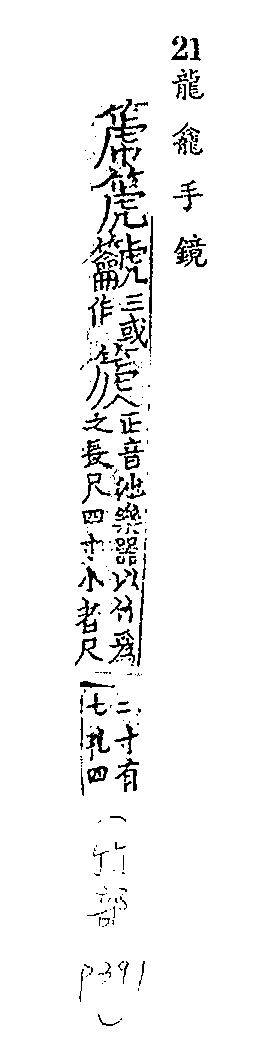 21 龍龕手鏡
三或作
正音池樂器以竹為
之長尺四寸小者尺
二寸有
七孔四
（竹部
p391）